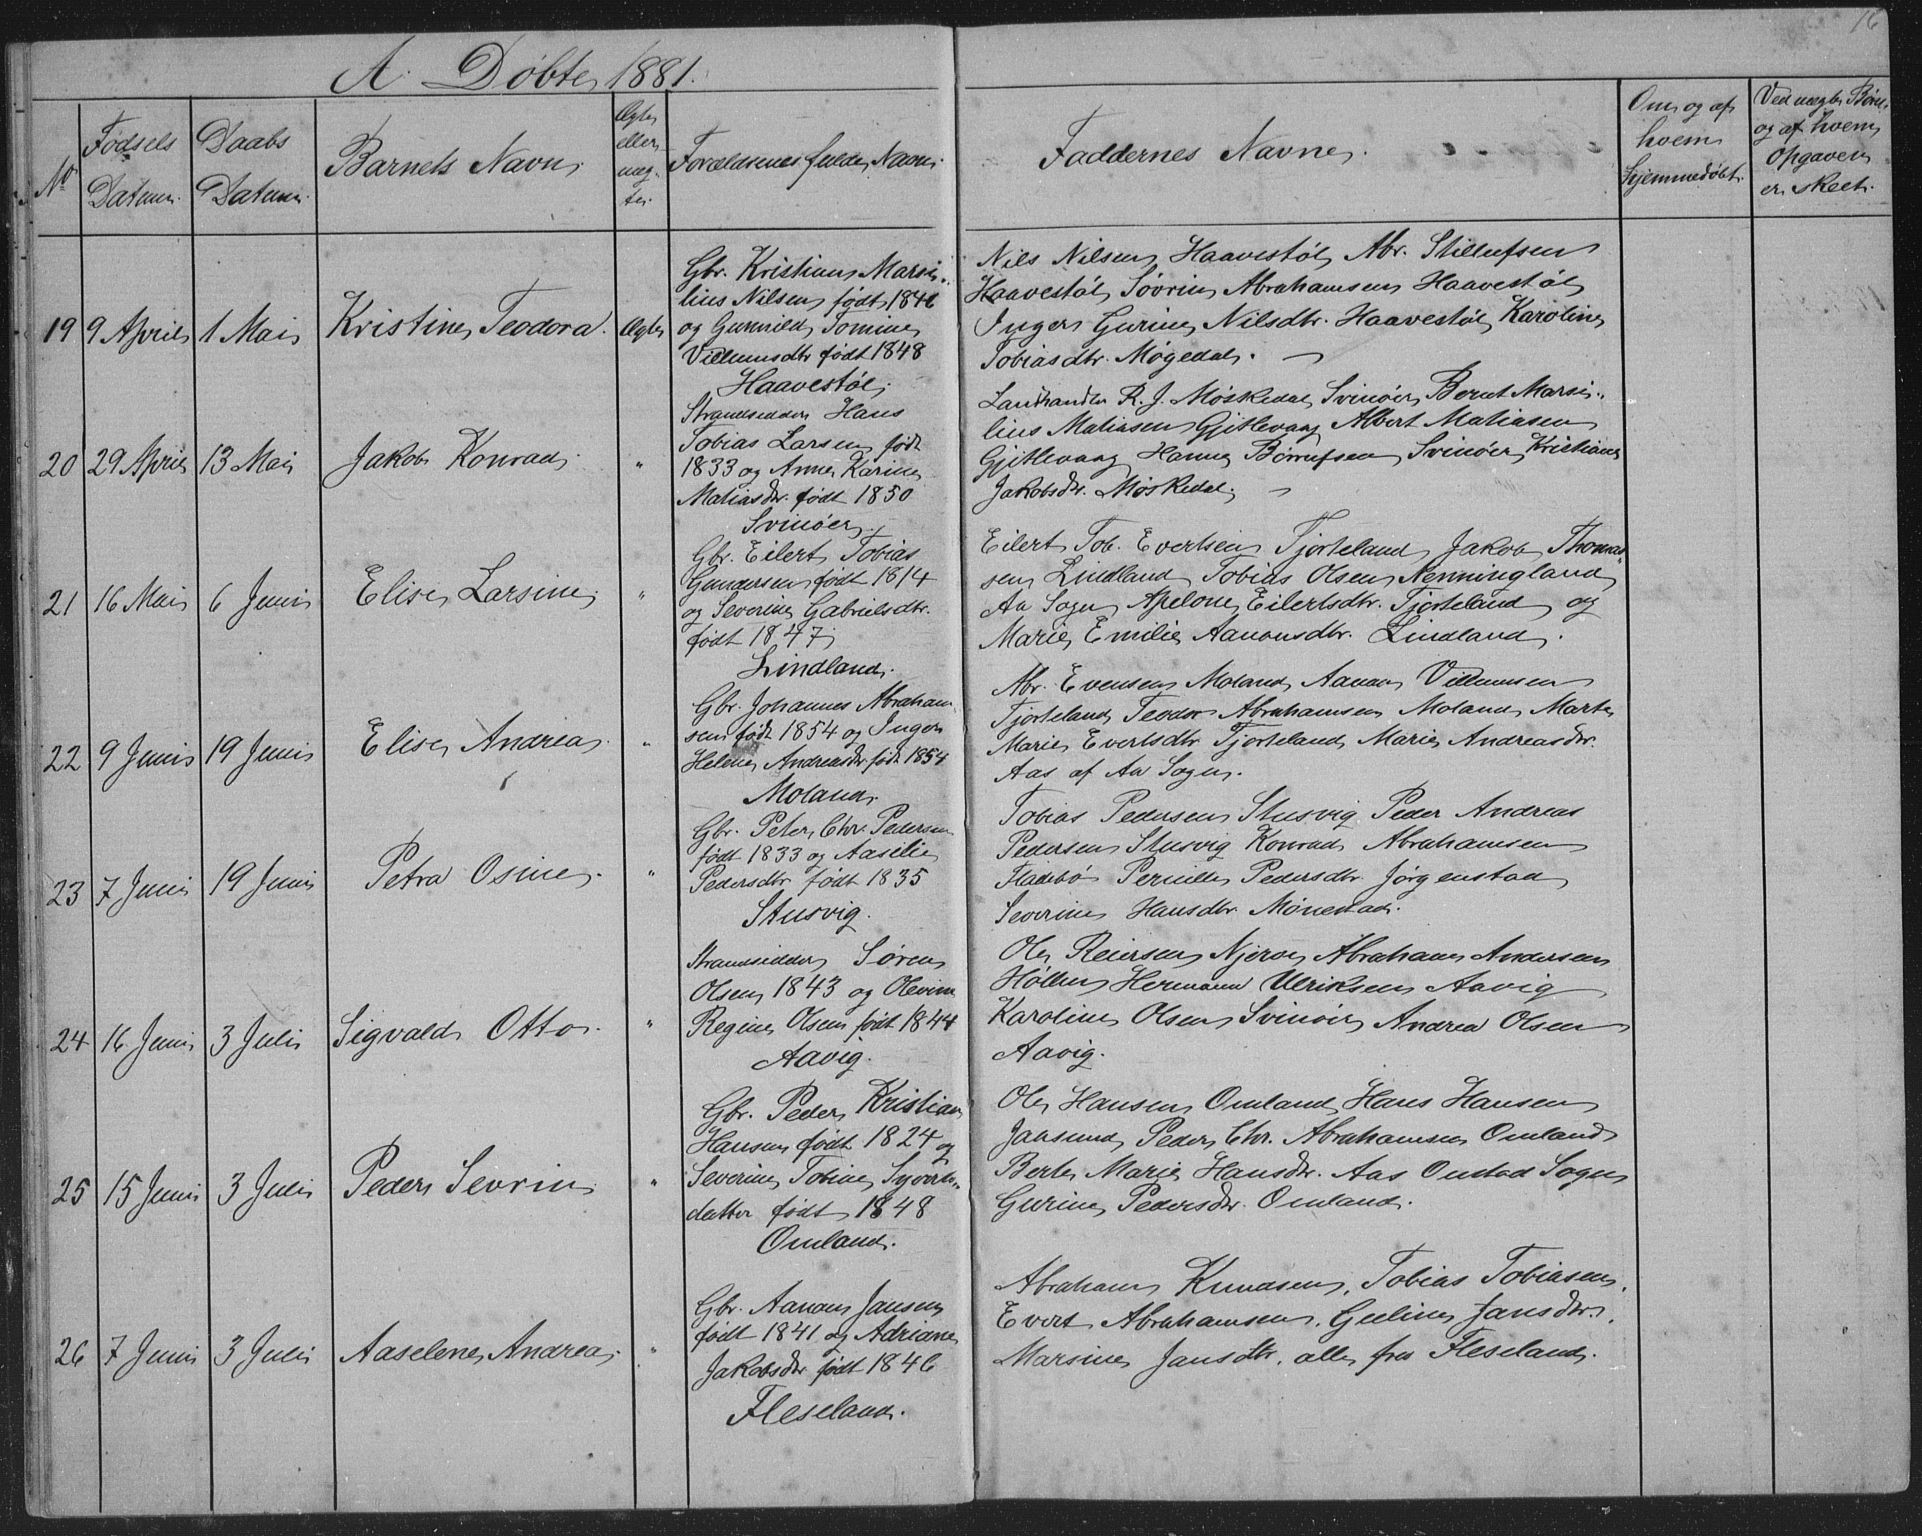 16
A. Døbte 1881.
No
Fødsels Datum.
Daabs Datum.
Barnets Navn.
Ægte eller uægte.
Forældrenes fulde Navn.
Faddernes Navne.
Om og af hvem Hjemmedøbt.
Ved uægte Børn og af hvem Opgaven er skeet.
19 9 April 1 Mai Kristine Teodora. Ægte
Gbr. Kristian Marsi-
lius Nilsen født 1846
og Gunvild Tomine
Villumsdtr født 1848
Haavestøl.
Nils Nilsen Haavestøl Abr. Stillufsen
Haavestøl Søvrin Abrahamsen Haavestøl
Inger Gurine Nilsdtr. Haavestøl Karoline
Tobiasdtr. Møgedal. —
20 29 April 13 Mai Jakob Konrad. "
Strandsidder Hans
Tobias Larsen født
1833 og Anne Karine
Matiasdr. født 1850
Svinøer.
Landhandler R. J. Møskedal Svinøer Bernt Marsi-
lius Matiasen Gjitlevaag Albert Matiasen
Gjitlevaag Hanne Børrufsen Svinøer Kristiane
Jakobsdr. Møskedal. —
21 16 Mai 6 Juni Elise Larsine. "
Gbr. Eilert Tobias
Gundersen født 1814
og Severine Gabrielsdtr.
født 1847
Lindland.
Eilert Tob. Evertsen Tjorteland Jakob Thomas-
sen Lindland Tobias Olsen Nenningland
Aa Sogn Apelone Eilertsdtr. Tjorteland og
Marie Emilie Aanonsdtr. Lindland.
22 9 Juni 19 Juni Elise Andrea. "
Gbr. Johannes Abraham-
sen født 1854 og Inger
Helene Andreasdr. født 1854
Moland.
Abr. Evensen Moland Aanon Villumsen
Tjorteland Teodor Abrahamsen Moland Marte
Marie Evertsdtr Tjorteland Marie Andreasdr.
Aas af Aa Sogn.
23 7 Juni 19 Juni Petra Osine. "
Gbr. Peter Chr. Pedersen
født 1833 og Aaselie
Pedersdtr født 1835
Stusvig.
Tobias Pedersen Stusvig Peder Andreas
Pedersen Stusvig Konrad Abrahamsen
Fladebø Pernille Pedersdtr Jørgenstad
Severine Hansdtr. Mønestad.
24 16 Juni 3 Juli Sigvald Otto. "
Strandsidder Søren
Olsen 1843 og Olevine
Regine Olsen født 1844
Aavig.
Ole Reiersen Njerve Abraham Andersen
Høllen Hermann Ulriksen Aavig
Karoline Olsen Svinøer Andrea Olsen
Aavig.
25 15 Juni 3 Juli Peder Sevrin. "
Gbr. Peder Kristian
Hansen født 1824 og
Severine Tobine Syverts-
datter født 1848
Omland.
Ole Hansen Omland Hans Hansen
Jaasund Peder Chr. Abrahamsen Omland
Berte Marie Hansdr. Aas Oustad Sogn
Gurine Pedersdr. Omland.
26 7 Juni 3 Juli Aaselene Andrea. "
Gbr. Aanon Jansen
født 1841 og Adriane
Jakobsdr født 1846
Fleseland.
Abraham Knudsen, Tobias Tobiasen,
Evert Abrahamsen, Geline Jansdr.,
Marsine Jansdtr. alle fra Fleseland.